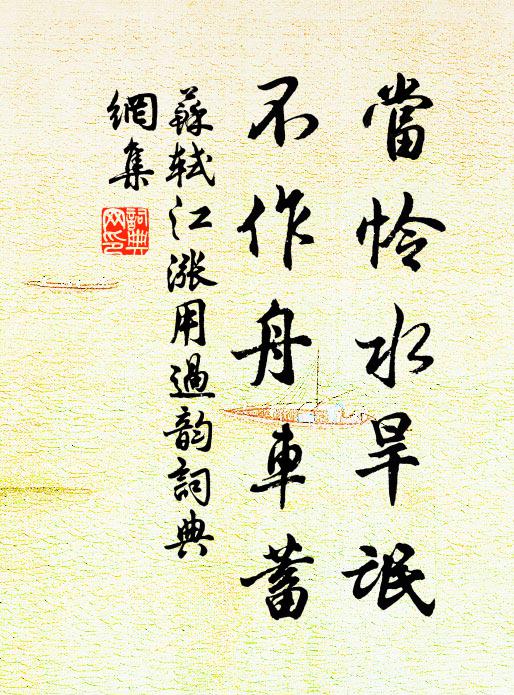 當怜水旱氓
不作舟車蓄
蘇軾江漲用過韵詞典
網集
詞典
网印